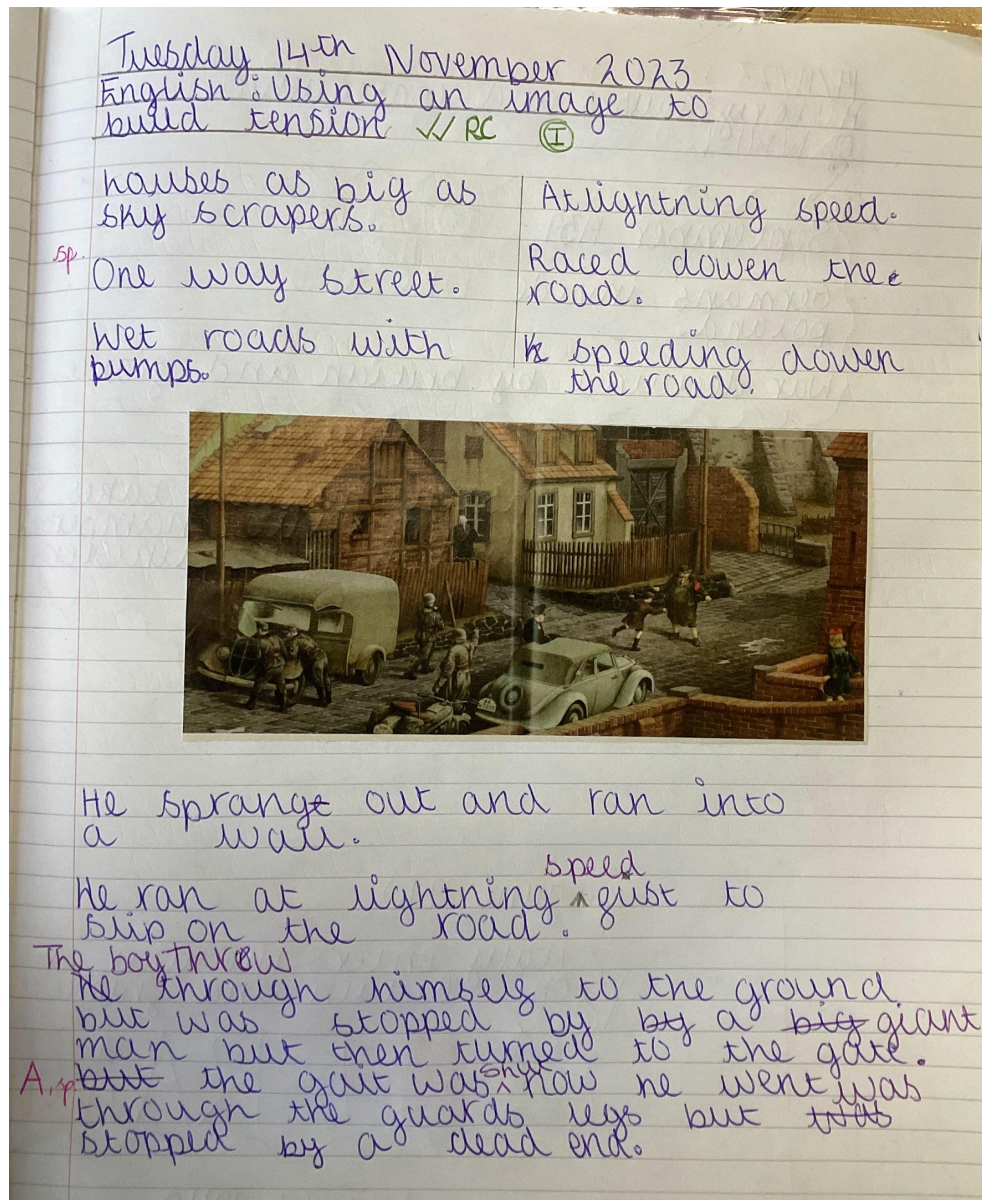 Tuesday 14th November 2023
English: Using an image to
build tension ✓✓ RC I
houses as big as
sky scrapers.
sp.
One way street.
Wet roads with
bumps.
At lightning speed.
Raced dowen the
road.
speeding dowen
the road.
He sprang out and ran into
a wall.
speed
He ran at lightning ^ gust to
slip on the road.
The boy Throw
He through himself to the ground
but was stopped by by a big giant
man but then turned to the gate.
shut
A, sp but the gait was ^ now he went was
through the guards legs but was
stopped by a dead end.